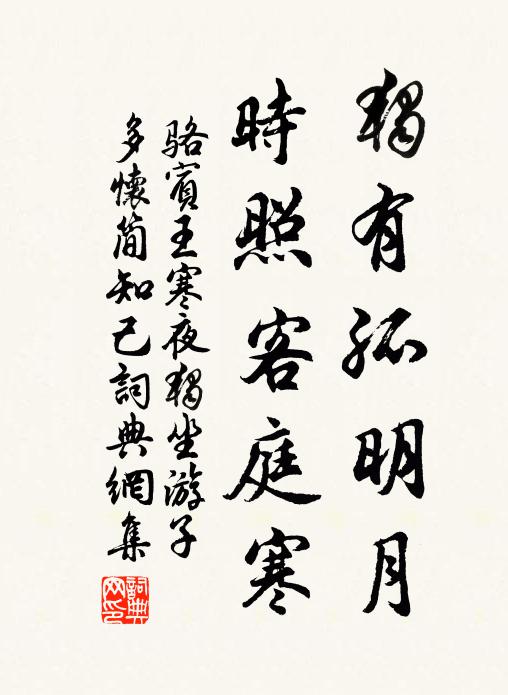 獨有孤明月
時照客庭寒
駱賓王寒夜獨坐游子
多懷簡知己詞典網集
詞典
网印